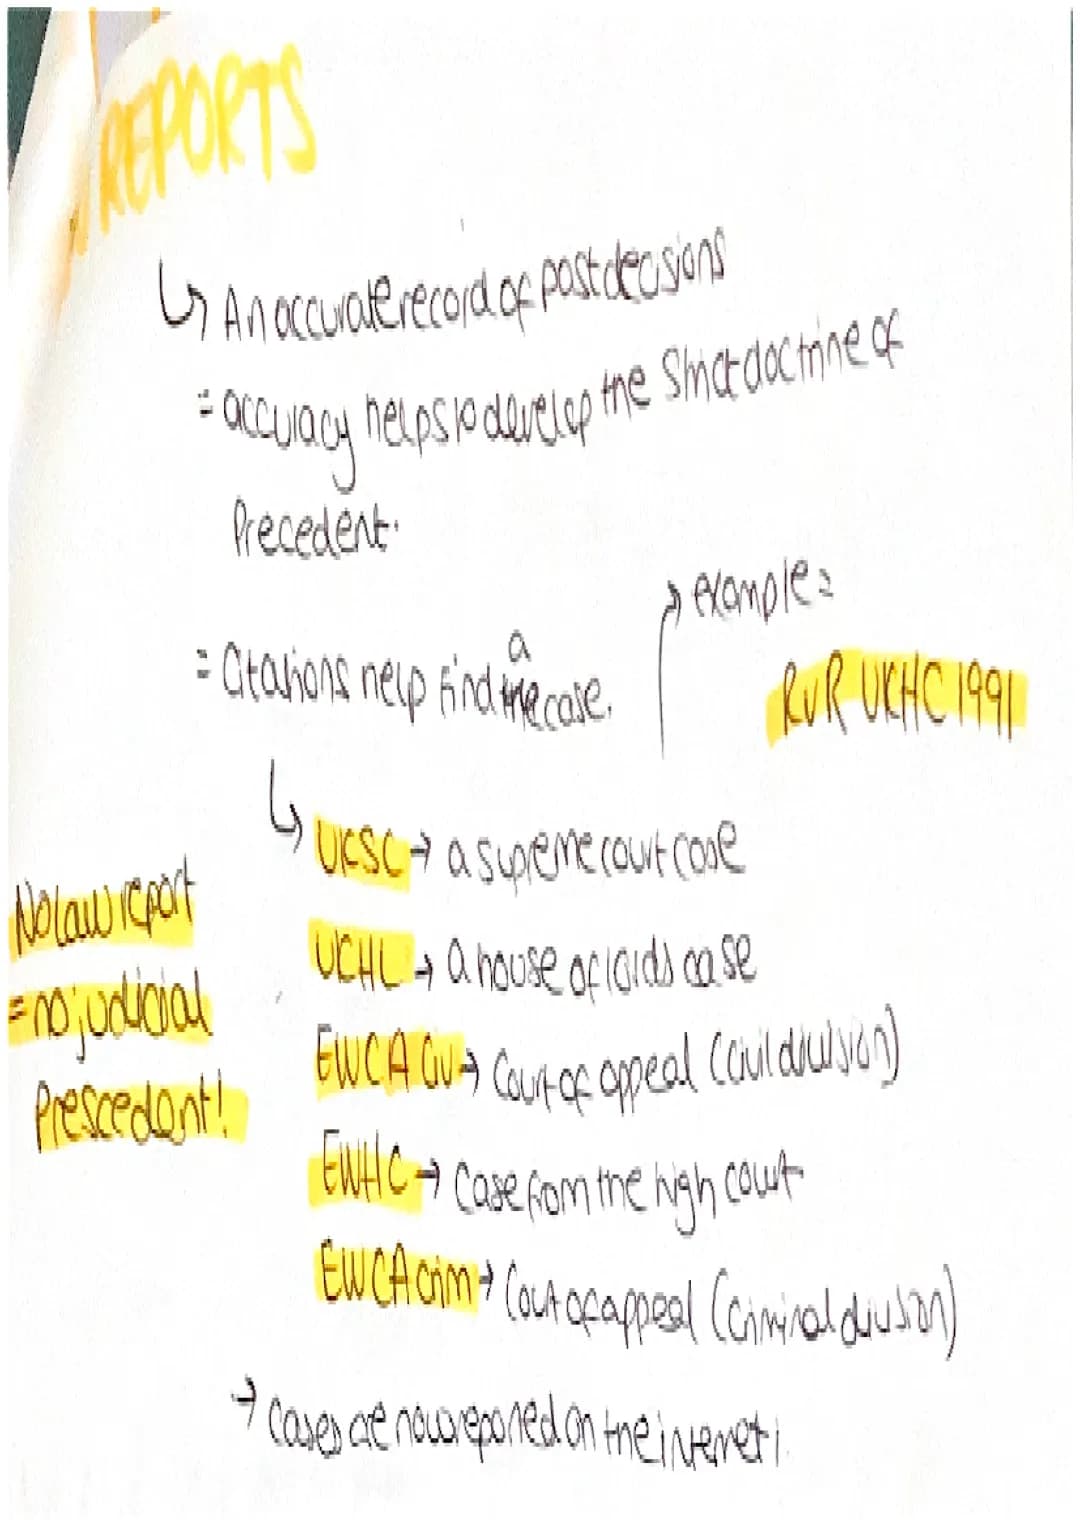 REPORTS
↳ An accurate record of past decisions
= accuracy helps to develop the strict doctrine of
Precedent.
→ example =
= Citations help find a the case.
RvR UKHC 1991
↳ UKSC → a supreme court case
No law report
UKHL → a house of lords case
= no judicial
EWCA civ → Court of appeal (civil division)
Prescedent!
EWHC → Case from the high court
EWCA crim → Court of appeal (criminal division)
→ Cases are now reported on the internet